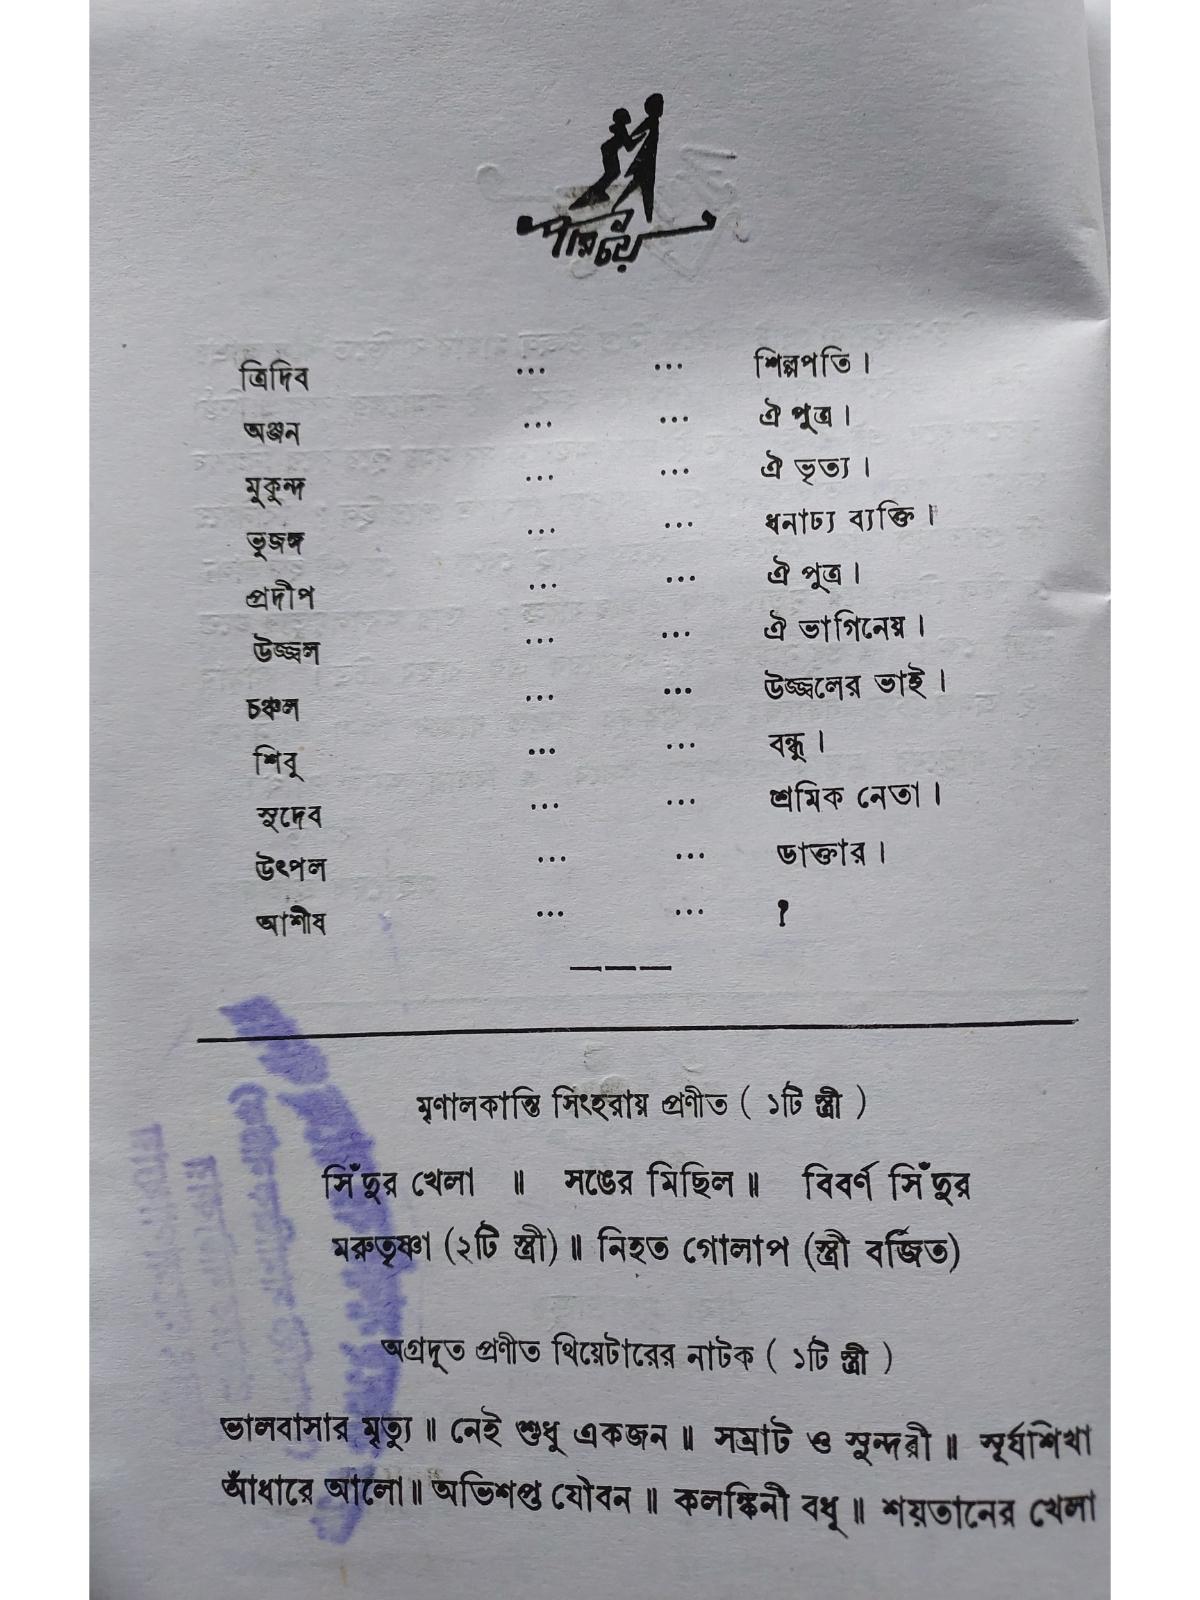 পরিচয়
ত্রিদিব ... ... শিল্পপতি।
অঞ্জন ... ... ঐ পুত্র।
মুকুন্দ ... ... ঐ ভৃত্য।
ভুজঙ্গ ... ... ধনাঢ্য ব্যক্তি।
প্রদীপ ... ... ঐ পুত্র।
উজ্জ্বল ... ... ঐ ভাগিনেয়।
চঞ্চল ... ... উজ্জ্বলের ভাই।
শিবু ... ... বন্ধু।
সুদেব ... ... শ্রমিক নেতা।
উৎপল ... ... ডাক্তার।
আশীষ ... ... ?
মৃণালকান্তি সিংহরায় প্রণীত ( ১টি স্ত্রী )
সিঁদুর খেলা ॥ সঙের মিছিল ॥ বিবর্ণ সিঁদুর
মরুতৃষ্ণা (২টি স্ত্রী) ॥ নিহত গোলাপ (স্ত্রী বর্জিত)
অগ্রদূত প্রণীত থিয়েটারের নাটক ( ১টি স্ত্রী )
ভালবাসার মৃত্যু ॥ নেই শুধু একজন ॥ সম্রাট ও সুন্দরী ॥ সূর্যশিখা
আঁধারে আলো ॥ অভিশপ্ত যৌবন ॥ কলঙ্কিনী বধূ ॥ শয়তানের খেলা